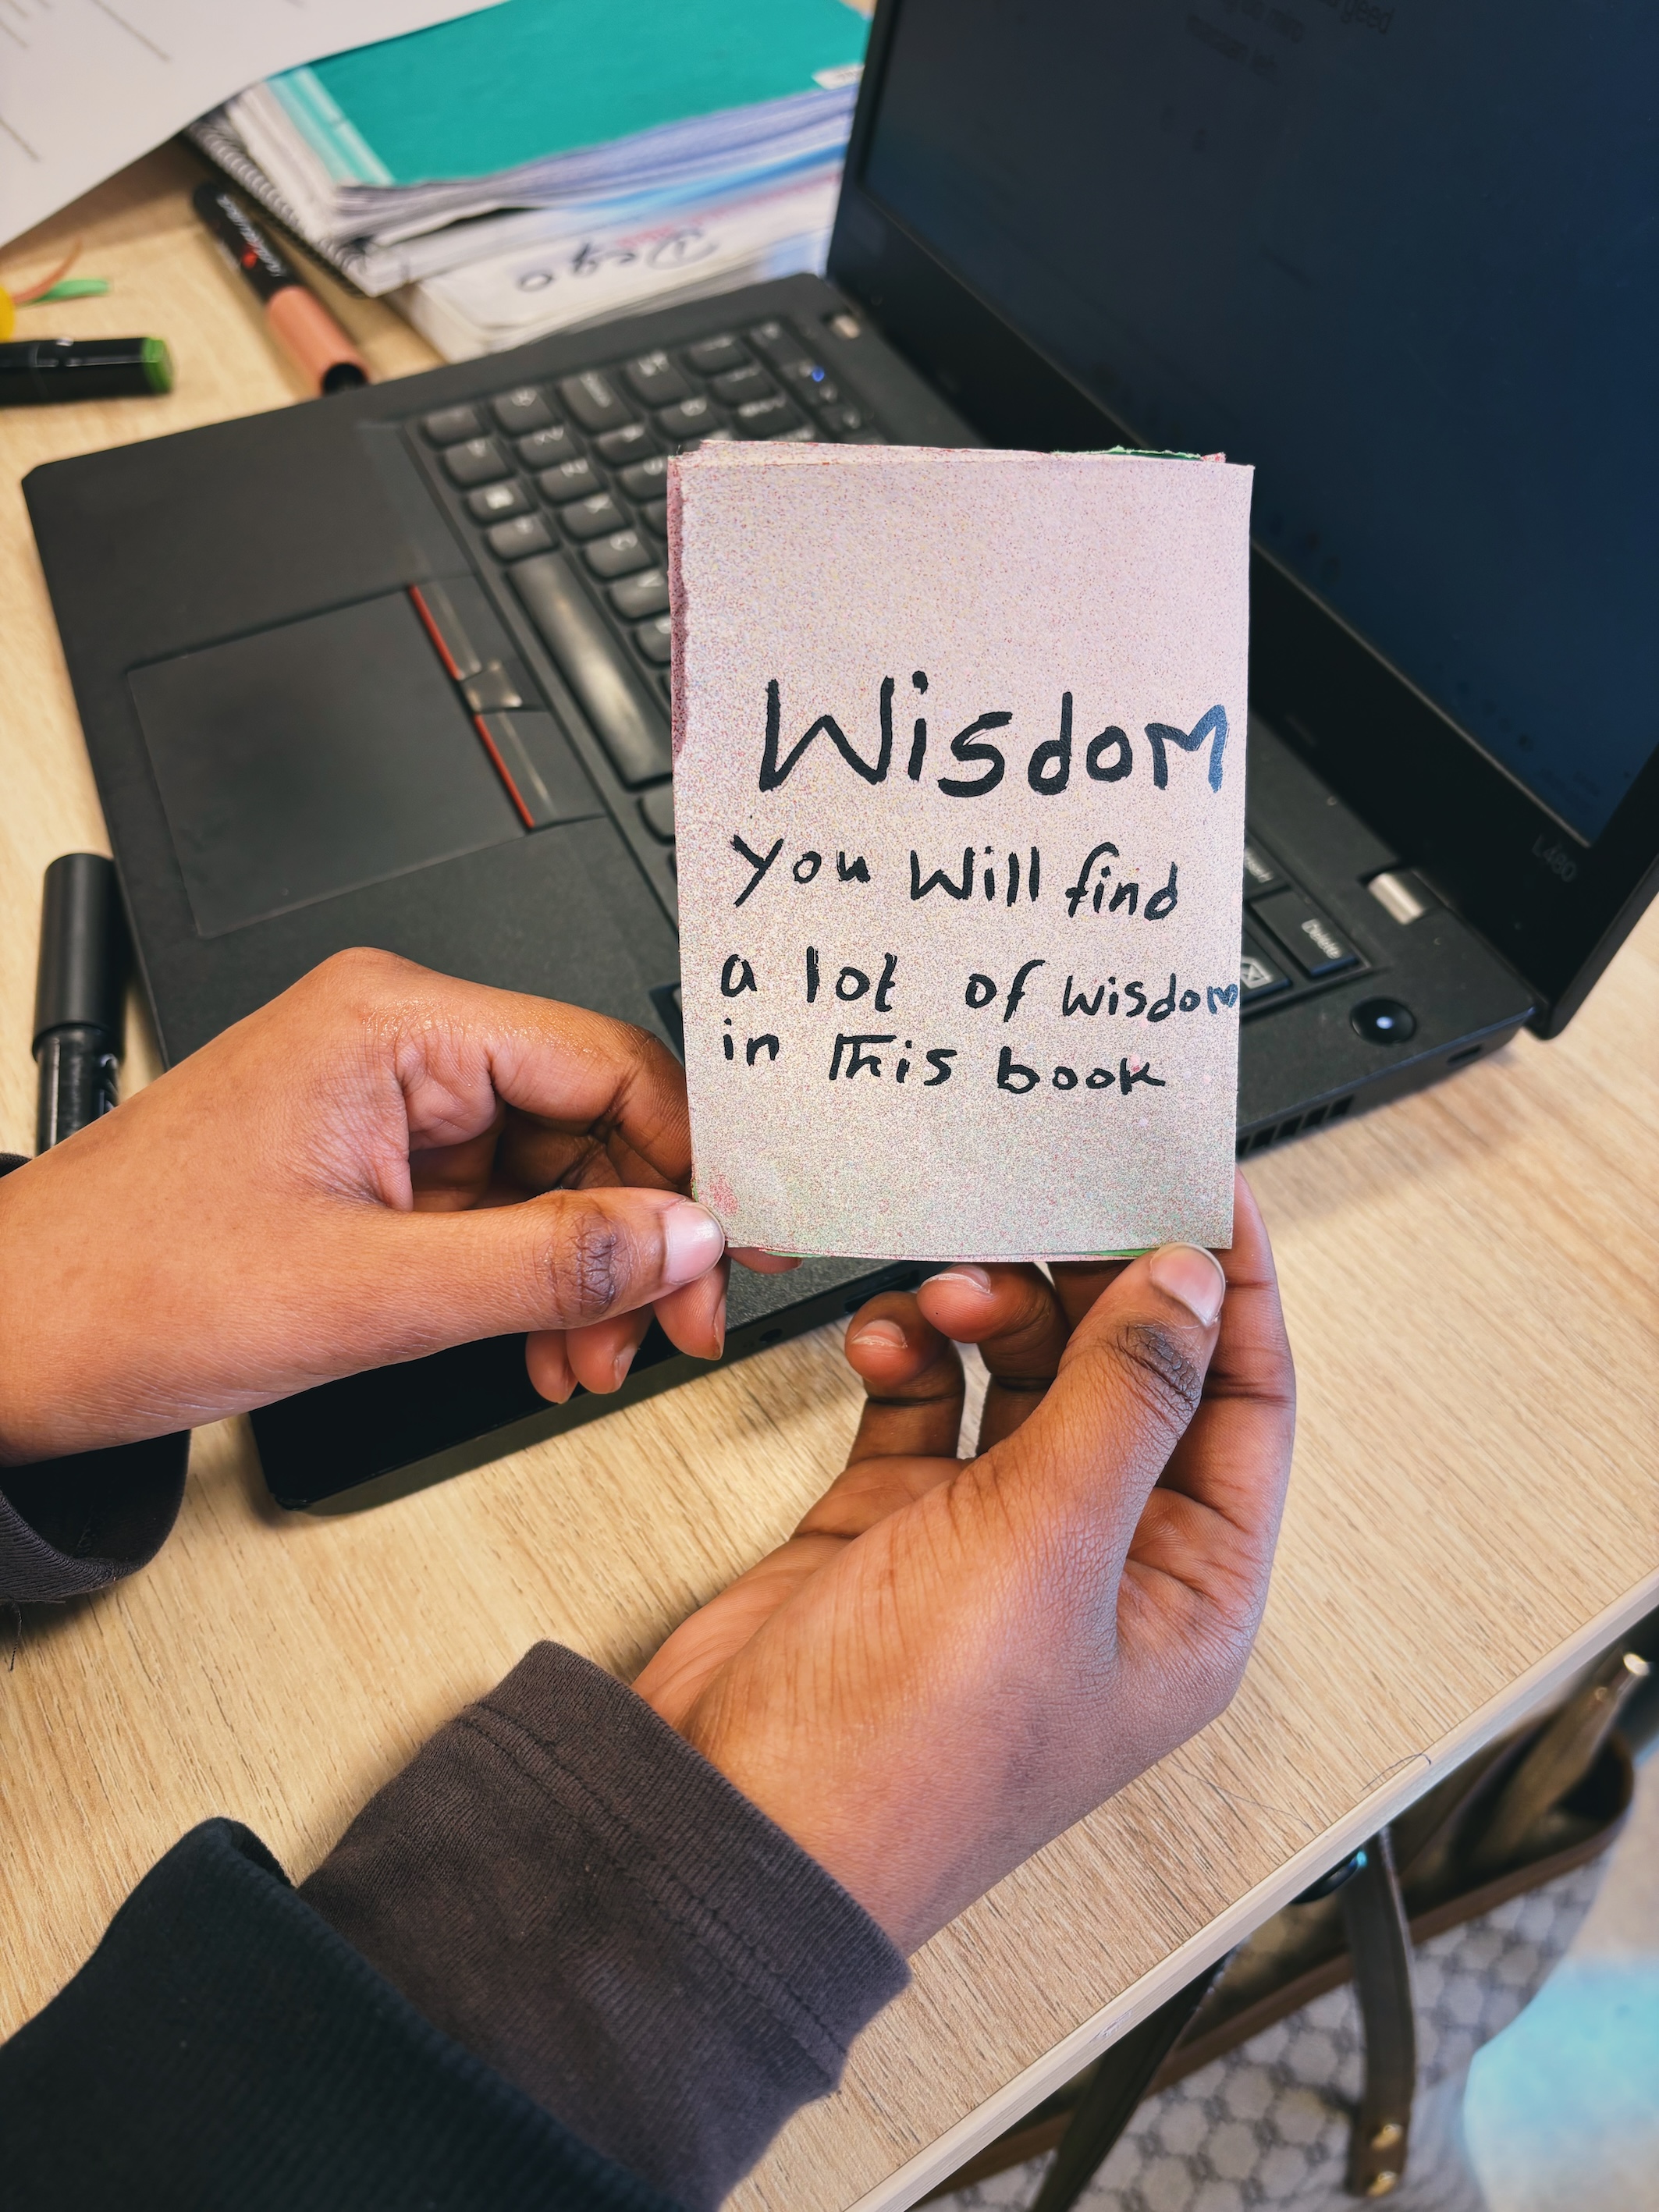 Wisdom
you will find
a lot of wisdom
in This book
Delete
L480